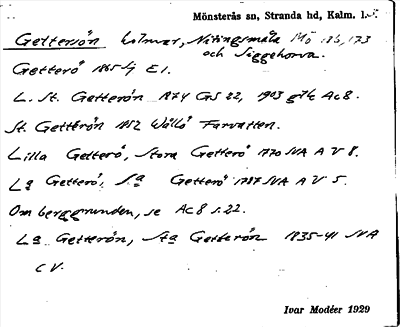 Mönsterås sn, Stranda hd, Kalm. l.
Gettersön holmar, Nötingsmåla Mö 126, 173
och Siggehorva.
Getterö 1865-7 E 1.
L. St. Getterön 1874 GS 22, 1903 g7k Ac8.
St. Getterön 1852 Wållö Farvatten.
Lilla Getterö, Stora Getterö 1770 SVA A V 8.
La Getterö, Sa Getterö 1787 SVA A V 5.
Om berggrunden, se Ac8 s. 22.
La Getterön, Sta Getterön 1835-41 SVA
C V.
Ivar Modéer 1929